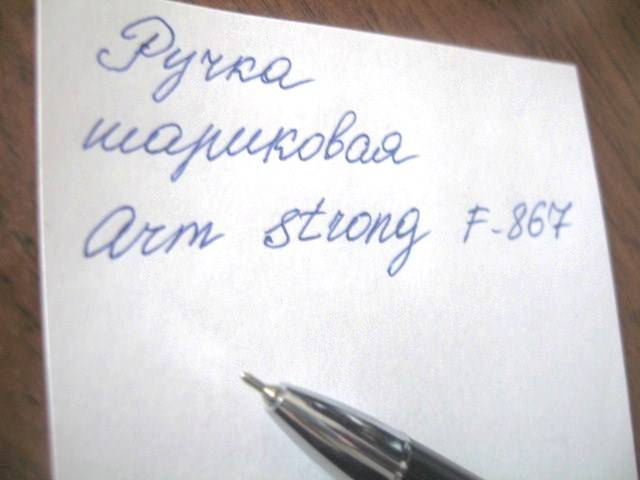 Ручка
шариковая
Arm strong F-867